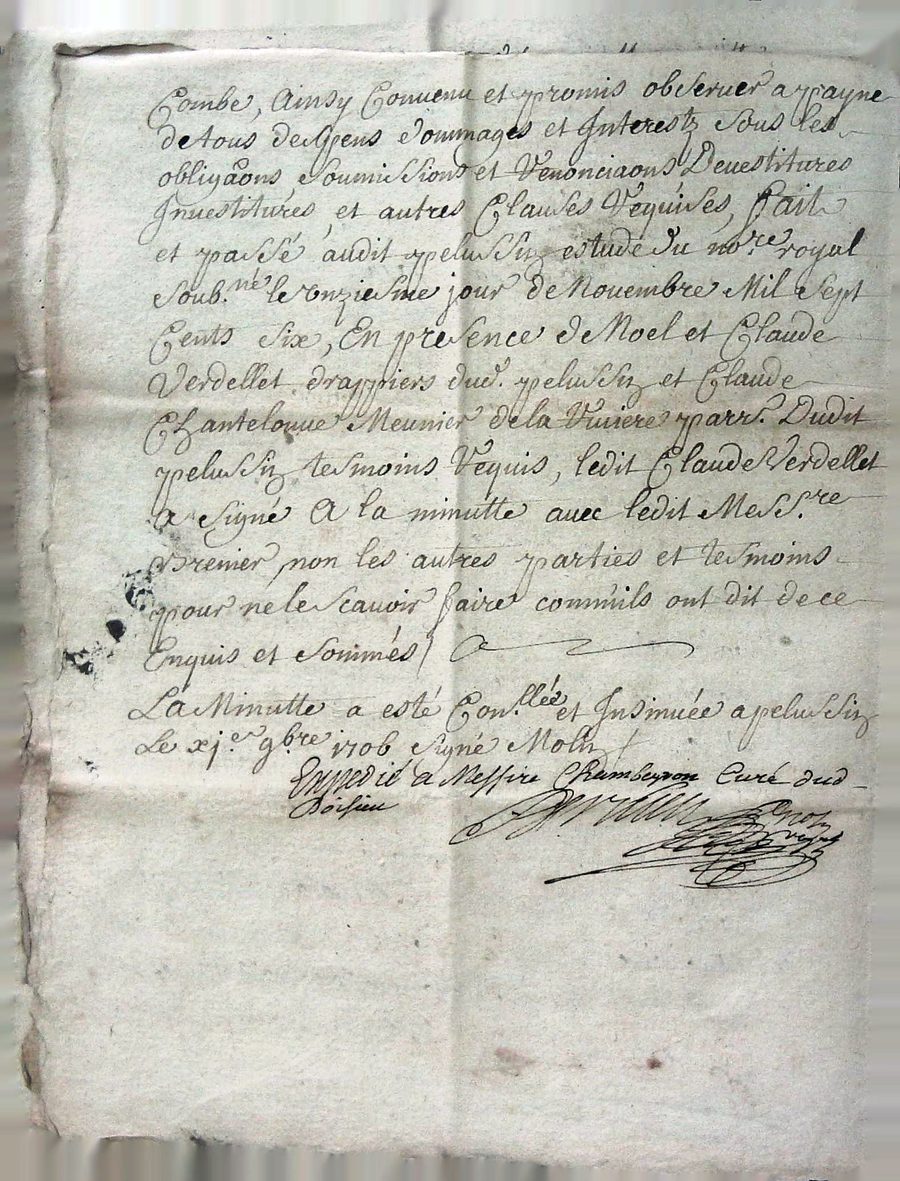 Combe, Ainsy Convenu et promis observer a payne
de tous despens dommages et Interestz sous les
obligãons soumissions et Renonciaons Devestitures
Investitures, et autres Clauses Requises, fait
et passé audit pelussin estude du no.re royal
soub.né le onziesme jour de Novembre Mil Sept
Cents six, En presence de Noel et Claude
Verdellet drappiers dud. pelussin et Claude
Chantelouue Meunier de la Riviere parr.e Dudit
pelussin tesmoins Requis, ledit Claude Verdellet
a signé A la minutte avec ledit Mess.re
Grenier, non les autres parties et tesmoins
pour ne le scavoir faire comm'ils ont dit de ce
Enquis et sommés
La Minutte a esté Con.llée et Insinuée a pelussin
Le xj.e 9bre 1706 signé Molin
Expedié a Messire Chambeyron Curé dud
Boisieu
no.re
royal